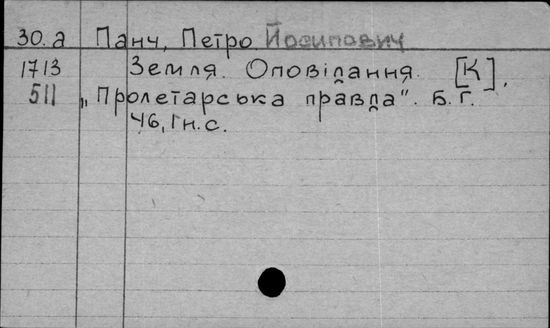 30.а Панч, Петро Йосипович
1713 Земля. Оповідання. [К],
511 „Пролетарська правда". Б.Г.
46, 1 н.с.